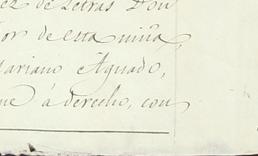 ez de Letras Don
or de esta mina,
ariano Aguado,
ue á derecho, con